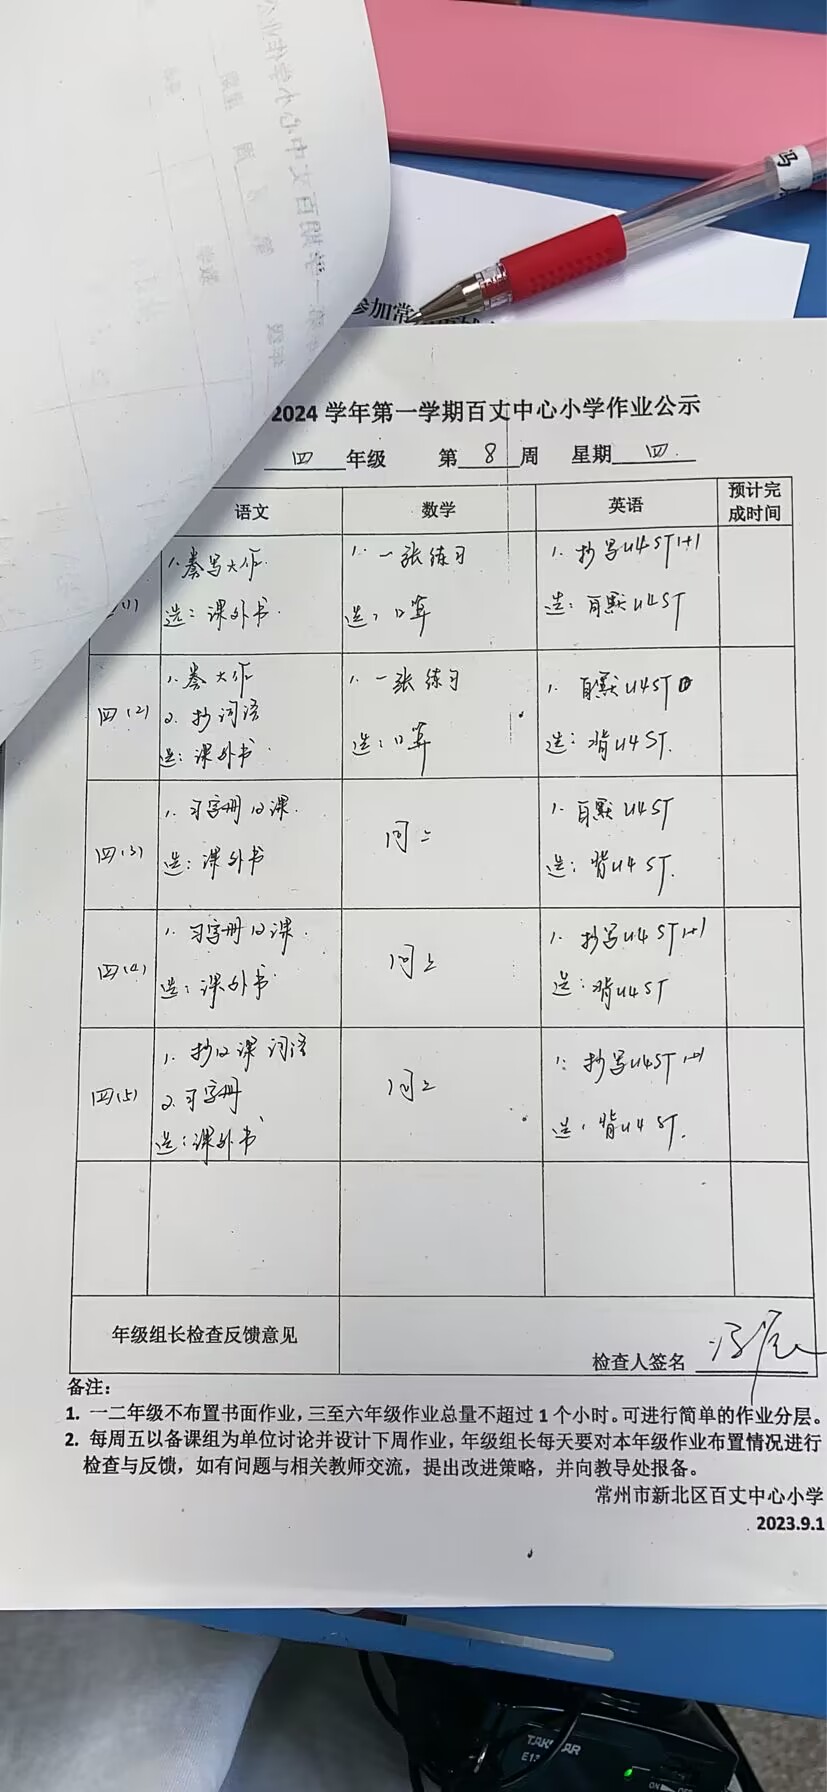 参加常
2024 学年第一学期百丈中心小学作业公示
四 年级 第 8 周 星期 四
语文 数学 英语 预计完成时间
(1) 1.誊写大作 选：课外书 1. 一张练习 选：口算 1. 抄写U4 ST 1+1 选：自默U4ST
四(2) 1.誊大作 2. 抄词语 选：课外书 1. 一张练习 选：口算 1. 自默U4ST 选：背U4 ST.
四(3) 1. 习字册12课. 选：课外书 同上 1. 自默U4ST 选：背U4 ST.
四(4) 1. 习字册12课. 选：课外书 同上 1. 抄写U4 ST 1+1 选：背U4ST
四(5) 1. 抄12课词语 2.习字册 选：课外书 同上 1. 抄写U4ST 1+1 选：背U4 ST.
年级组长检查反馈意见 检查人签名
备注：
1. 一二年级不布置书面作业，三至六年级作业总量不超过 1 个小时。可进行简单的作业分层。
2. 每周五以备课组为单位讨论并设计下周作业，年级组长每天要对本年级作业布置情况进行
检查与反馈，如有问题与相关教师交流，提出改进策略，并向教导处报备。
常州市新北区百丈中心小学
2023.9.1
TAKSTAR
ON